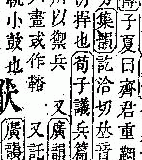 子夏曰齊君重
集韻訖洽切𠀤音
捍也荀子議兵篇
所以禦兵 又廣韻
畫或作韐 又記
小鼓也 廣韻